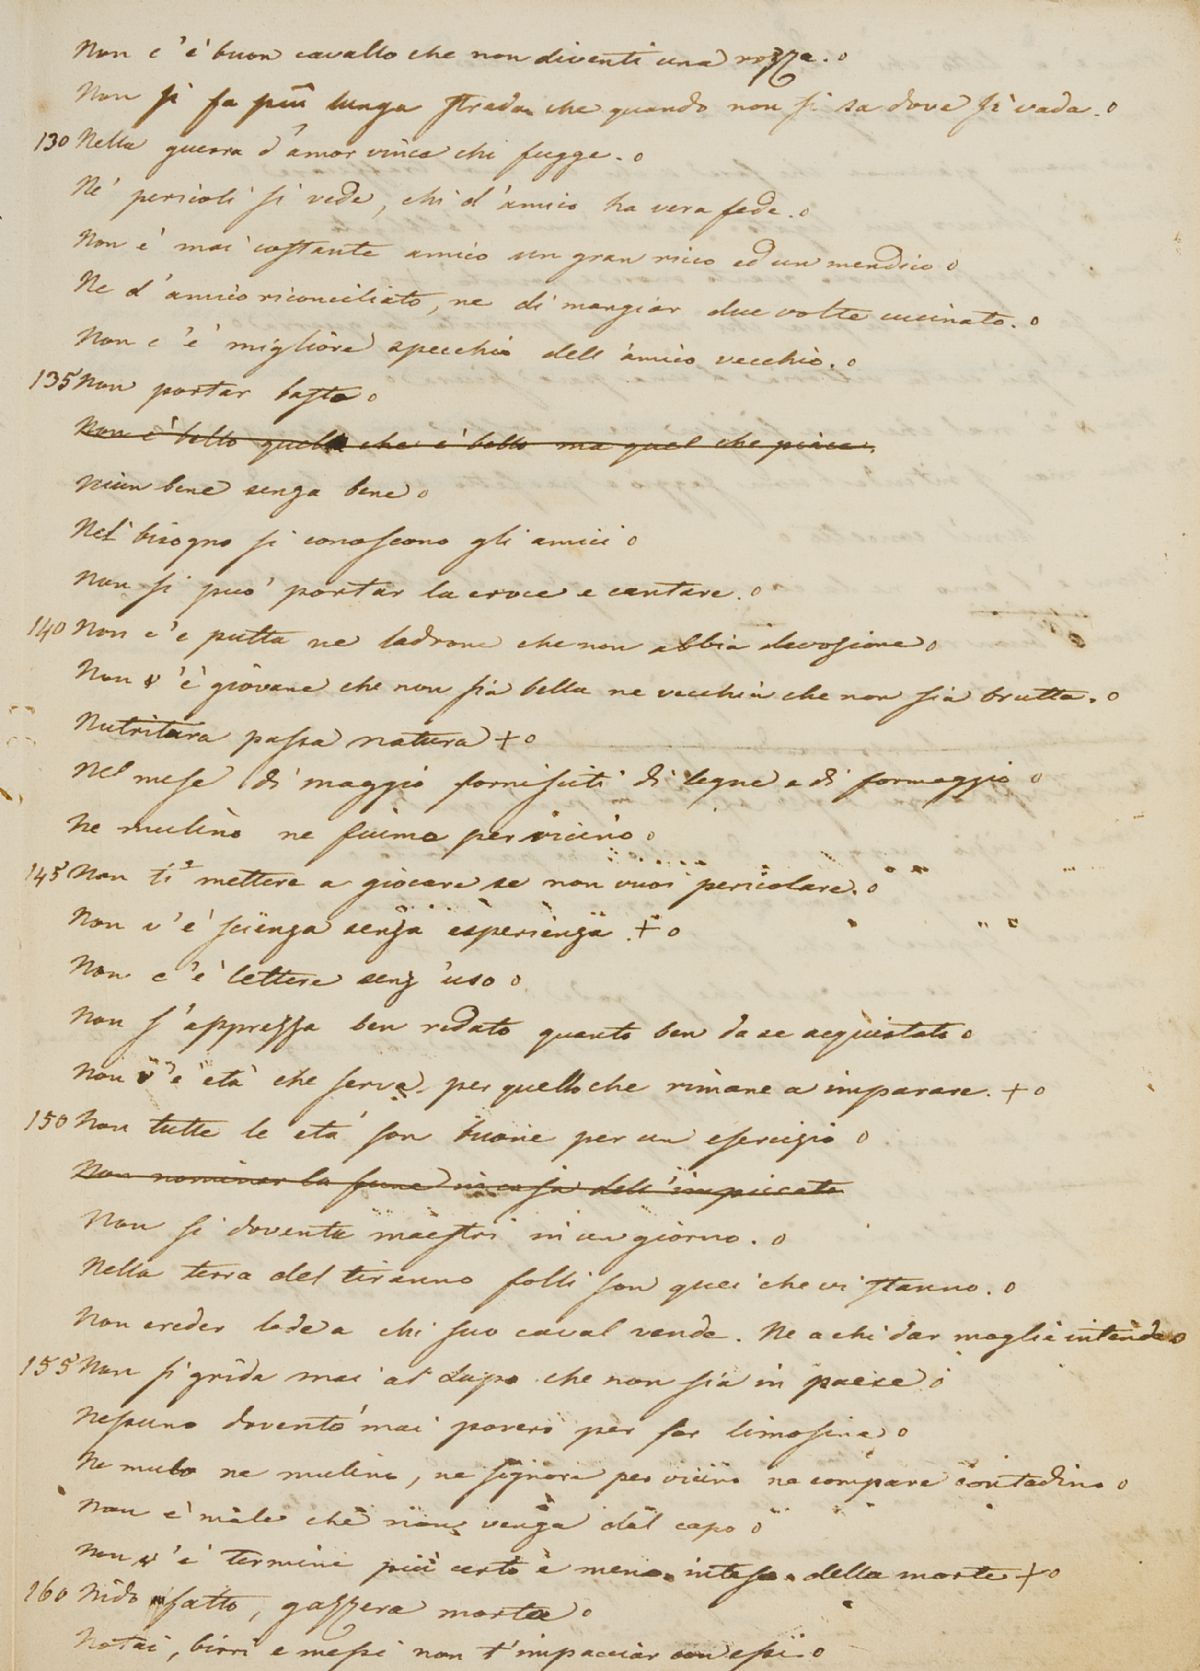 Non c'è buon cavallo che non diventi una rozza. o
Non si fa più lunga strada che quando non si sa dove si vada. o
130 Nella guerra d'amor vince chi fugge. o
Ne' pericoli si vede, chi d'amico ha vera fede. o
Non è mai costante amico un gran ricco ed un mendico o
Ne d'amico riconciliato, ne di mangiar due volte cucinato. o
Non c'è migliore specchio dell'amico vecchio. o
135 Non portar basto o
Non è bello quel che è bello ma quel che piace.
Niun bene senza bene o
Nel bisogno si conoscono gli amici o
Non si può portar la croce e cantare. o
140 Non c'è putta ne ladrone che non abbia devozione o
Non v'è giovane che non sia bella ne vecchia che non sia brutta. o
Nutritura passa natura + o
Nel mese di maggio fornisciti di legne e di formaggio o
Ne mulino ne fiume per vicino o
145 Non ti mettere a giocare se non vuoi pericolare. o
Non v'è scienza senza esperienza. + o
Non c'è lettere senz'uso o
Non s'apprezza ben redato quanto ben da se acquistato o
Non v'è età che serva per quello che rimane a imparare. + o
150 Non tutte le età son buone per un esercizio o
Non nominar la fune in casa dell'impiccato
Non si doventa maestri in un giorno. o
Nella terra del tiranno folli son quei che vi stanno. o
Non creder lode a chi suo caval vende. Ne a chi dar moglie intende o
155 Non si grida mai al lupo che non sia in paese o
Nessuno doventò mai povero per far limosina o
Ne mulo ne mulino, ne signore per vicino ne compare contadino o
Non è male che non venga dal capo o
Non v'è termine più certo e meno inteso della morte + o
160 Nido fatto, gazzera morta o
Notai, birri e messi non t'impacciar con essi. o